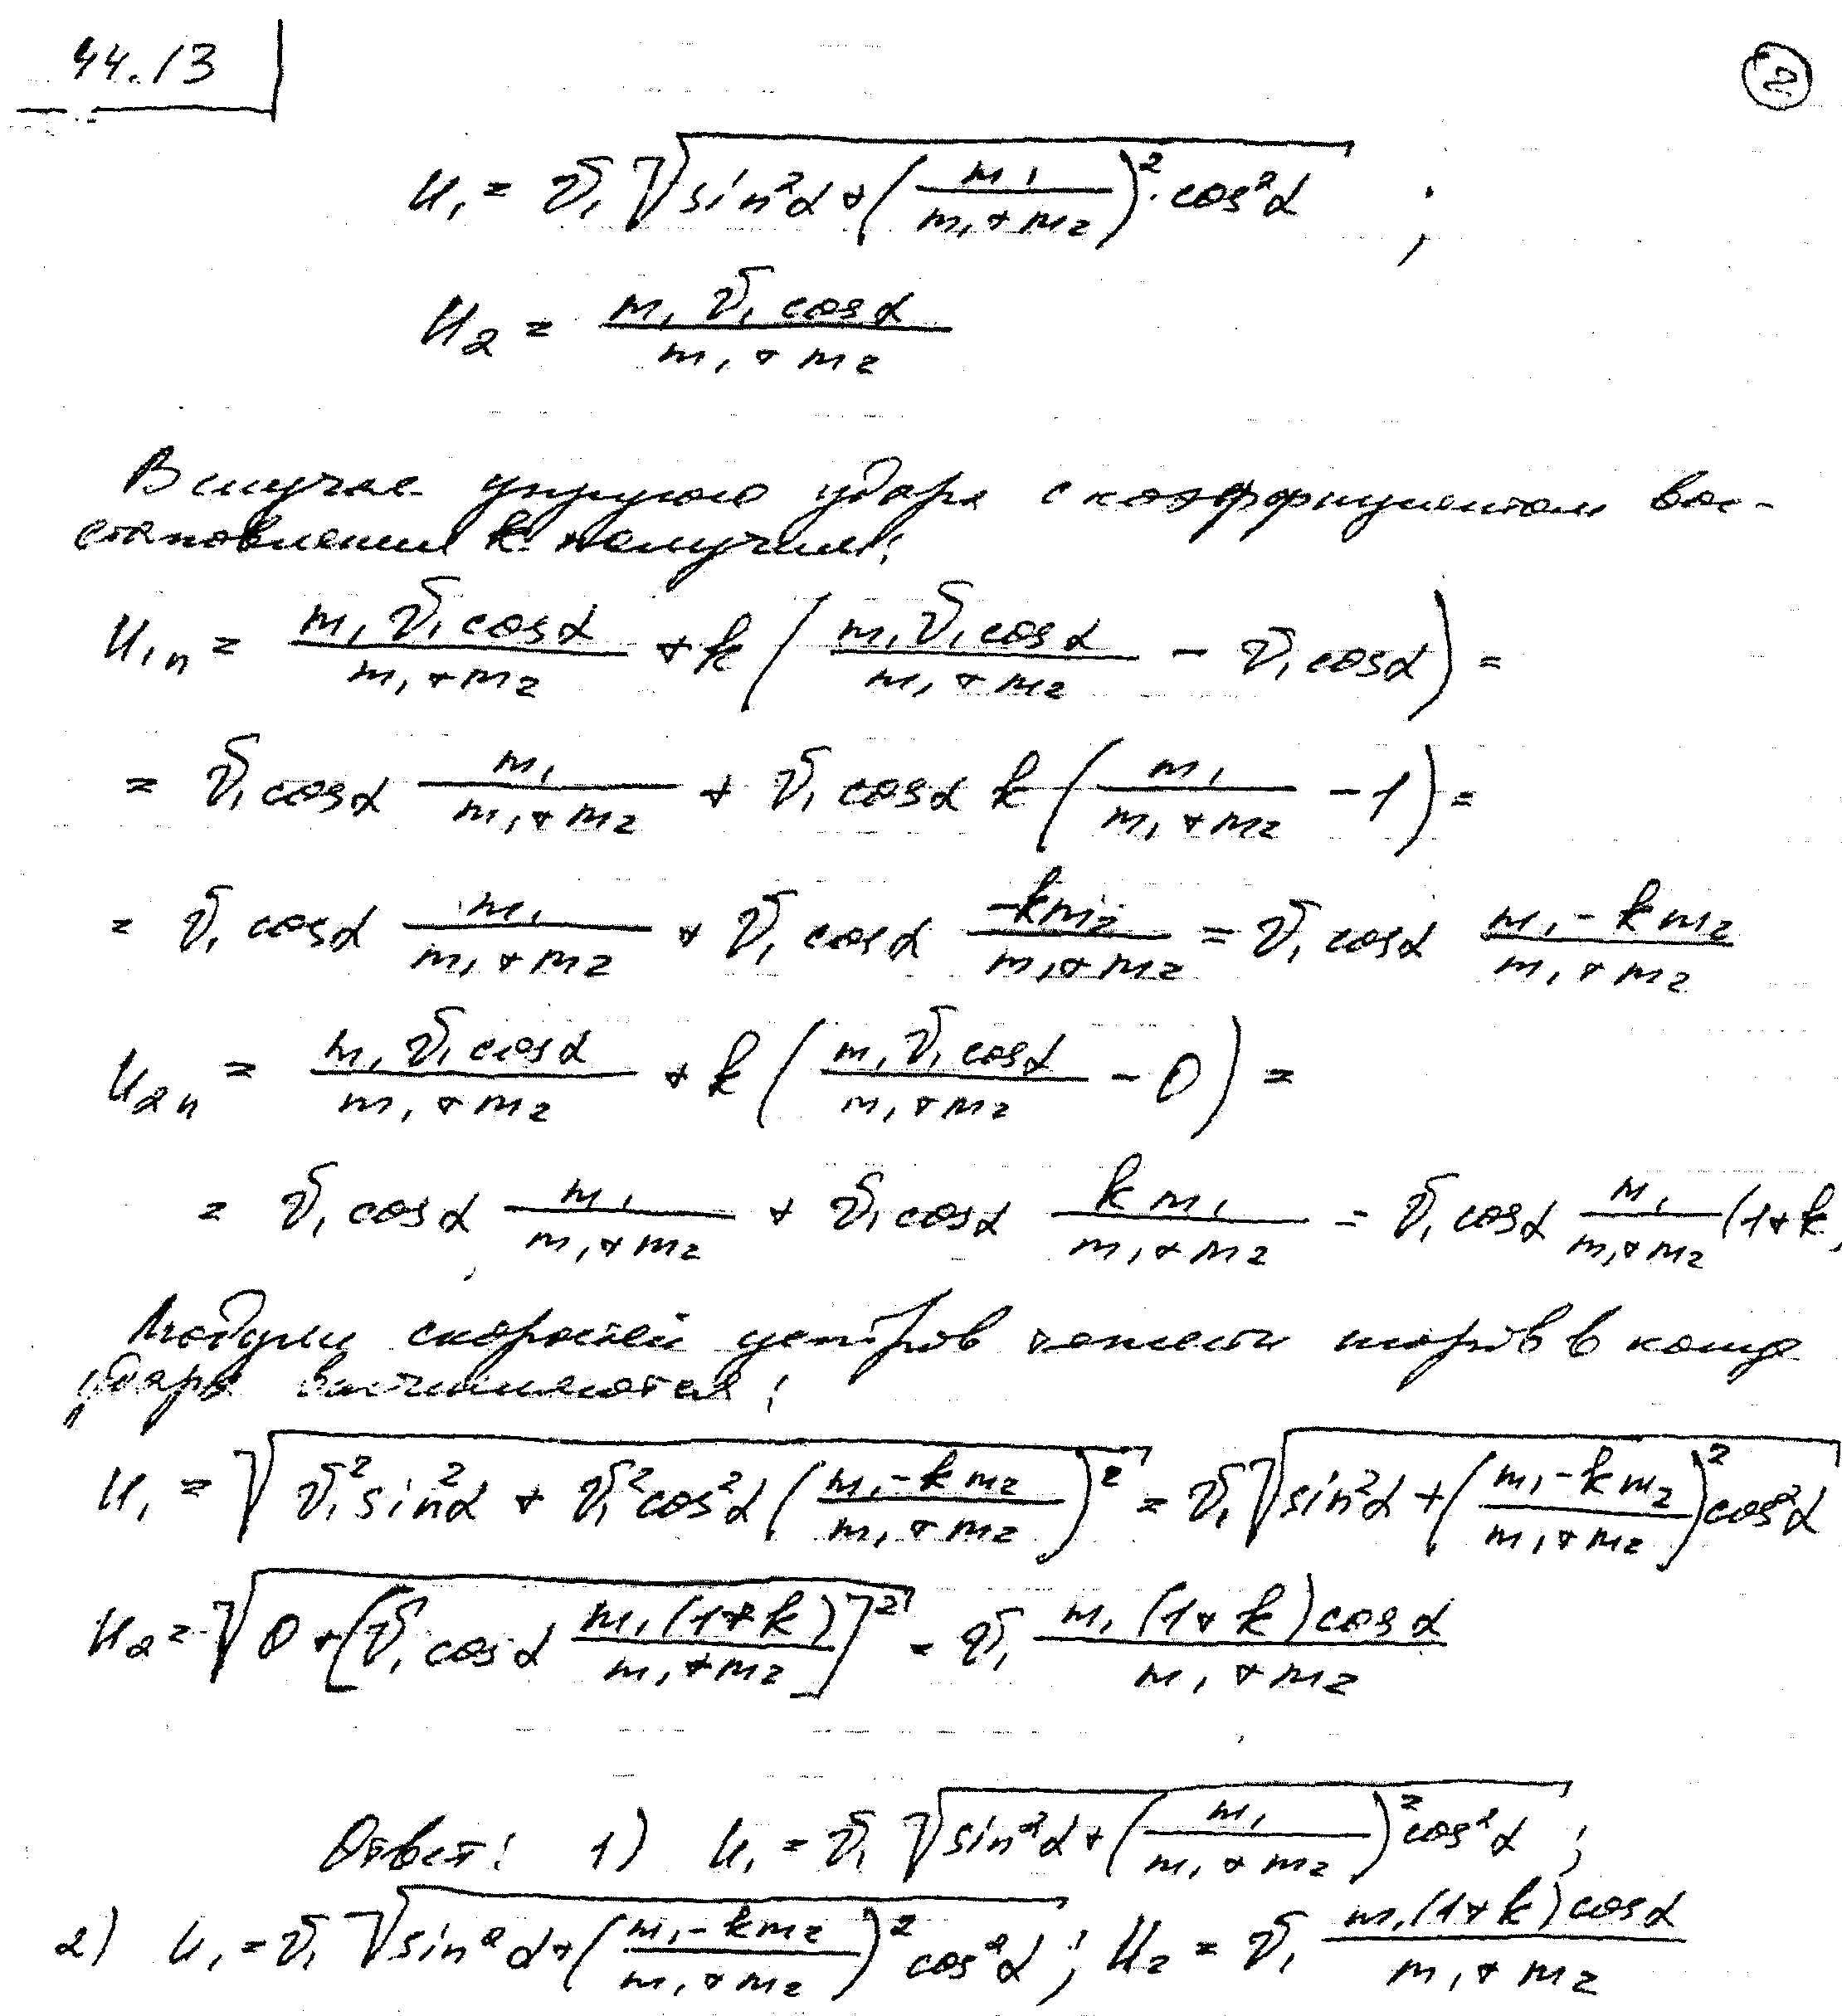 44.13
2
u₁ = v₁ √(sin²α + (m₁/(m₁+m₂))² · cos²α) ;
u₂ = m₁ v₁ cosα/(m₁+m₂)
В случае упругого удара с коэффициентом вос-
становления k получим:
u₁ₙ = m₁v₁cosα/(m₁+m₂) + k (m₁v₁cosα/(m₁+m₂) - v₁cosα) =
= v₁cosα m₁/(m₁+m₂) + v₁cosα k (m₁/(m₁+m₂) - 1) =
= v₁cosα m₁/(m₁+m₂) + v₁cosα -km₂/(m₁+m₂) = v₁cosα (m₁-km₂)/(m₁+m₂)
u₂ₙ = m₁v₁cosα/(m₁+m₂) + k (m₁v₁cosα/(m₁+m₂) - 0) =
= v₁cosα m₁/(m₁+m₂) + v₁cosα km₁/(m₁+m₂) = v₁cosα m₁/(m₁+m₂) (1+k
Модули скоростей центров тяжести шаров в конце
удара вычисляются:
u₁ = √(v₁²sin²α + v₁²cos²α ((m₁-km₂)/(m₁+m₂))²) = v₁ √(sin²α + ((m₁-km₂)/(m₁+m₂))² cos²α)
u₂ = √(0 + [v₁cosα m₁(1+k)/(m₁+m₂)]²) = v₁ m₁(1+k)cosα/(m₁+m₂)
Ответ: 1) u₁ = v₁ √(sin²α + (m₁/(m₁+m₂))² cos²α) ;
2) u₁ = v₁ √(sin²α + ((m₁-km₂)/(m₁+m₂))² cos²α) ; u₂ = v₁ m₁(1+k)cosα/(m₁+m₂)